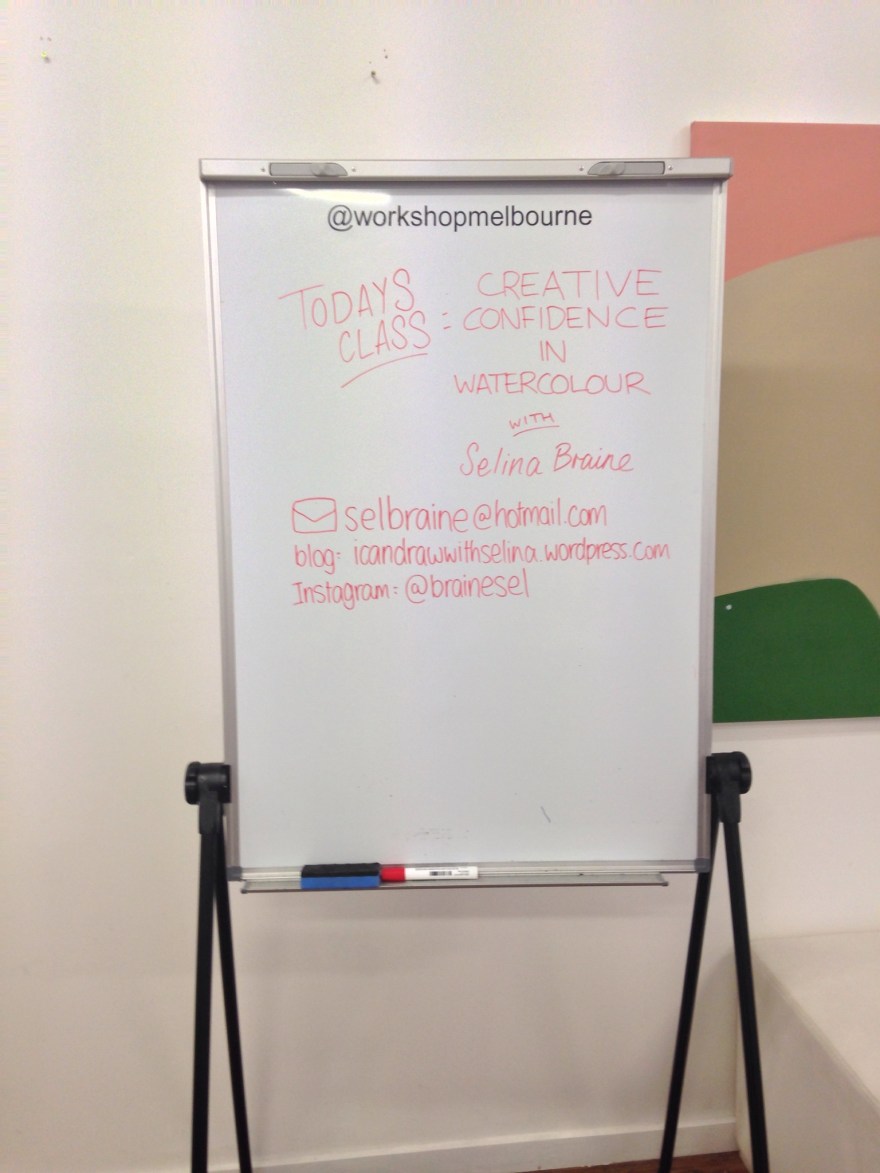 @workshopmelbourne
TODAYS CLASS : CREATIVE
CONFIDENCE
IN
WATERCOLOUR
WITH
Selina Braine
selbraine@hotmail.com
blog: icandrawwithselina.wordpress.com
Instagram: @brainesel